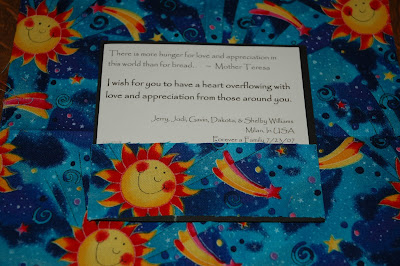 There is more hunger for love and appreciation in
this world than for bread. ~ Mother Teresa
I wish for you to have a heart overflowing with
love and appreciation from those around you.
Jerry, Jodi, Gavin, Dakota, & Shelby Williams
Milan, In USA
Forever a Family 7/23/07